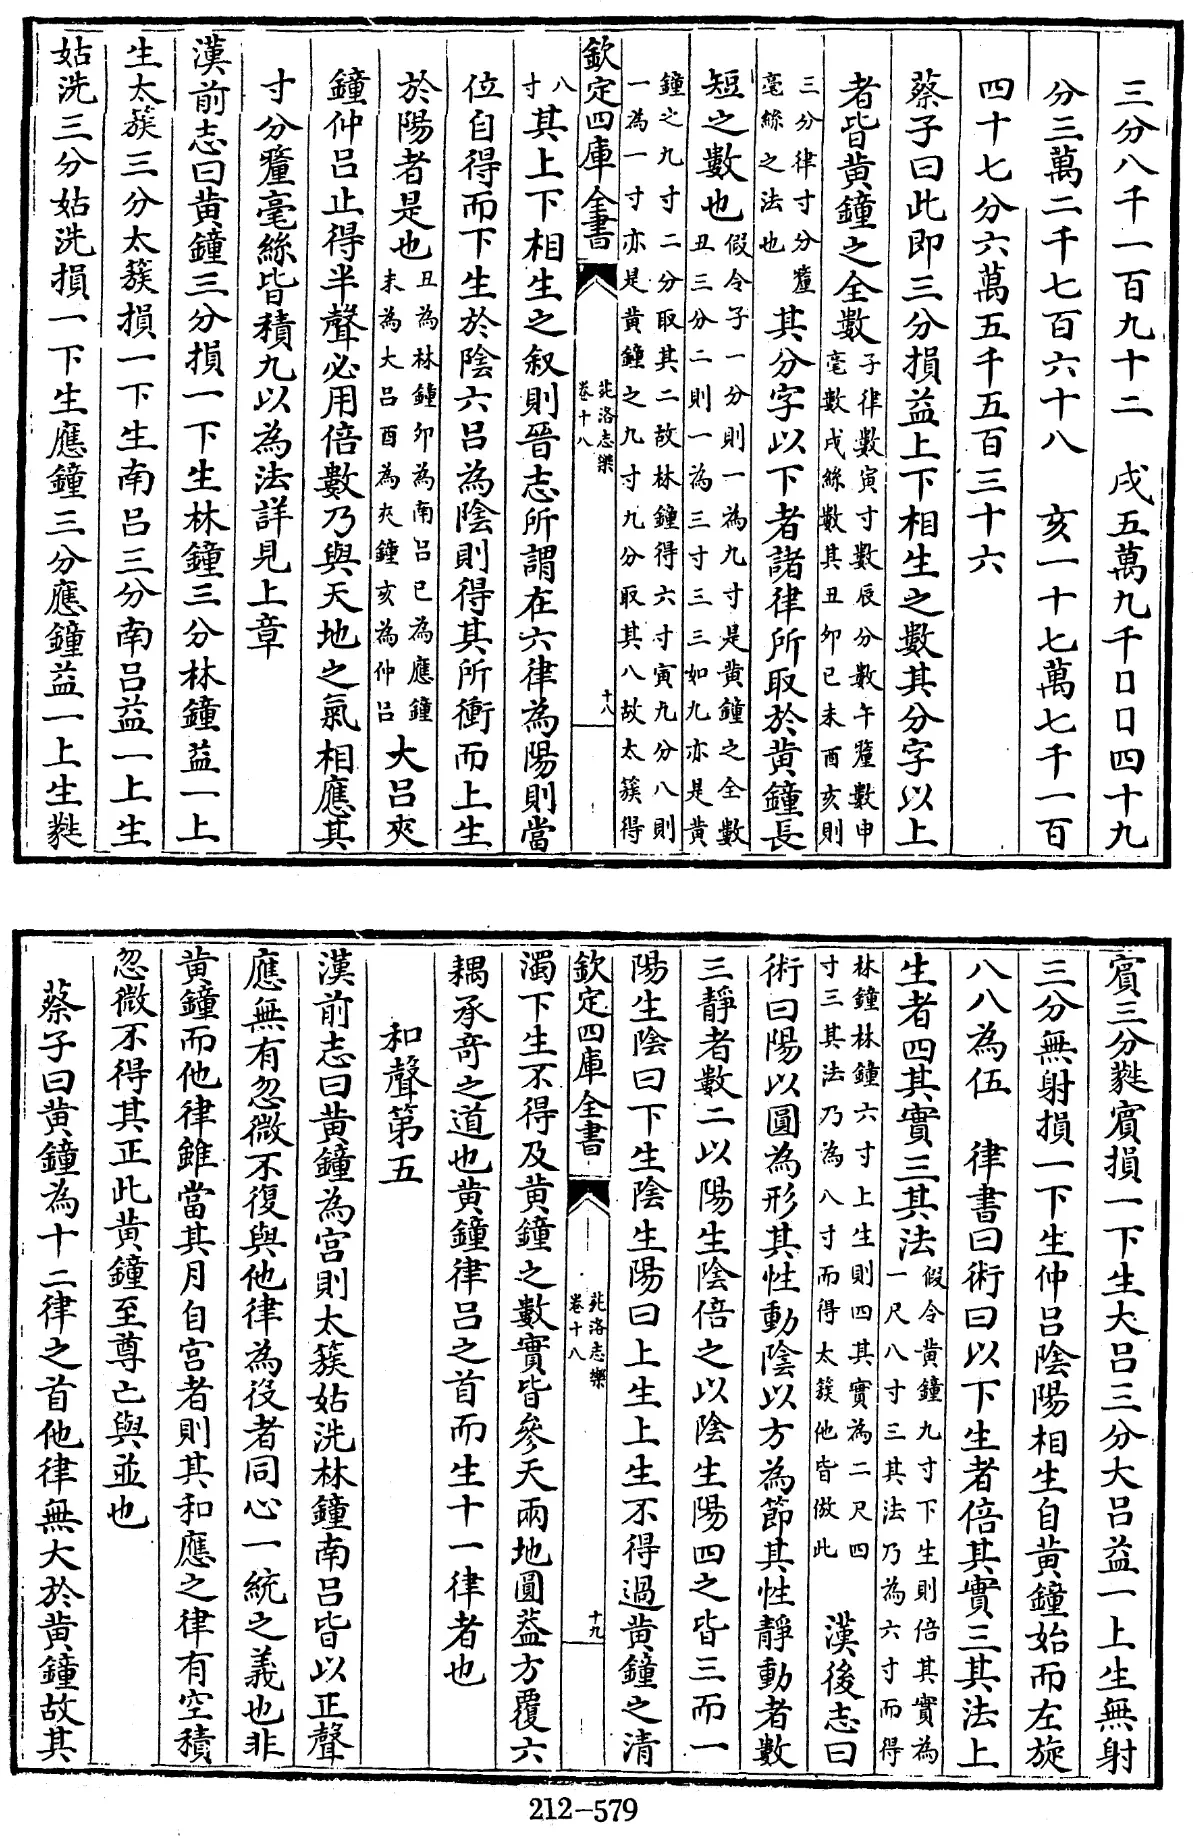 三分八千一百九十二　戌五萬九千口口四十九
分三萬二千七百六十八　亥一十七萬七千一百
四十七分六萬五千五百三十六
蔡子曰此即三分損益上下相生之數其分字以上
者皆黃鐘之全數子律數寅寸數辰分數午釐數申毫數戌絲數其丑卯巳未酉亥則
三分律寸分釐毫絲之法也其分字以下者諸律所取於黃鐘長
短之數也假令子一分則一為九寸是黃鐘之全數丑三分二則一為三寸三三如九亦是黃
鐘之九寸二分取其二故林鐘得六寸寅九分八則一為一寸亦是黃鐘之九寸九分取其八故太簇得
欽定四庫全書　苑洛志樂　卷十八　十八
八寸其上下相生之叙則晉志所謂在六律為陽則當
位自得而下生於陰六呂為陰則得其所衝而上生
於陽者是也丑為林鐘卯為南呂巳為應鐘未為大呂酉為夾鐘亥為仲呂大呂夾
鐘仲呂止得半聲必用倍數乃與天地之氣相應其
寸分釐毫絲皆積九以為法詳見上章
漢前志曰黃鐘三分損一下生林鐘三分林鐘益一上
生太簇三分太簇損一下生南呂三分南呂益一上生
姑洗三分姑洗損一下生應鐘三分應鐘益一上生蕤
賓三分蕤賓損一下生大呂三分大呂益一上生無射
三分無射損一下生仲呂陰陽相生自黃鐘始而左旋
八八為伍　律書曰術曰以下生者倍其實三其法上
生者四其實三其法假令黃鐘九寸下生則倍其實為一尺八寸三其法乃為六寸而得
林鐘林鐘六寸上生則四其實為二尺四寸三其法乃為八寸而得太簇他皆倣此　漢後志曰
術曰陽以圓為形其性動陰以方為節其性靜動者數
三靜者數二以陽生陰倍之以陰生陽四之皆三而一
陽生陰曰下生陰生陽曰上生上生不得過黃鐘之清
欽定四庫全書　苑洛志樂　卷十八　十九
濁下生不得及黃鐘之數實皆參天兩地圓蓋方覆六
耦承竒之道也黃鐘律呂之首而生十一律者也
和聲第五
漢前志曰黃鐘為宮則太簇姑洗林鐘南呂皆以正聲
應無有忽微不復與他律為役者同心一統之義也非
黃鐘而他律雖當其月自宮者則其和應之律有空積
忽微不得其正此黃鐘至尊亡與並也
蔡子曰黃鐘為十二律之首他律無大於黃鐘故其
212-579